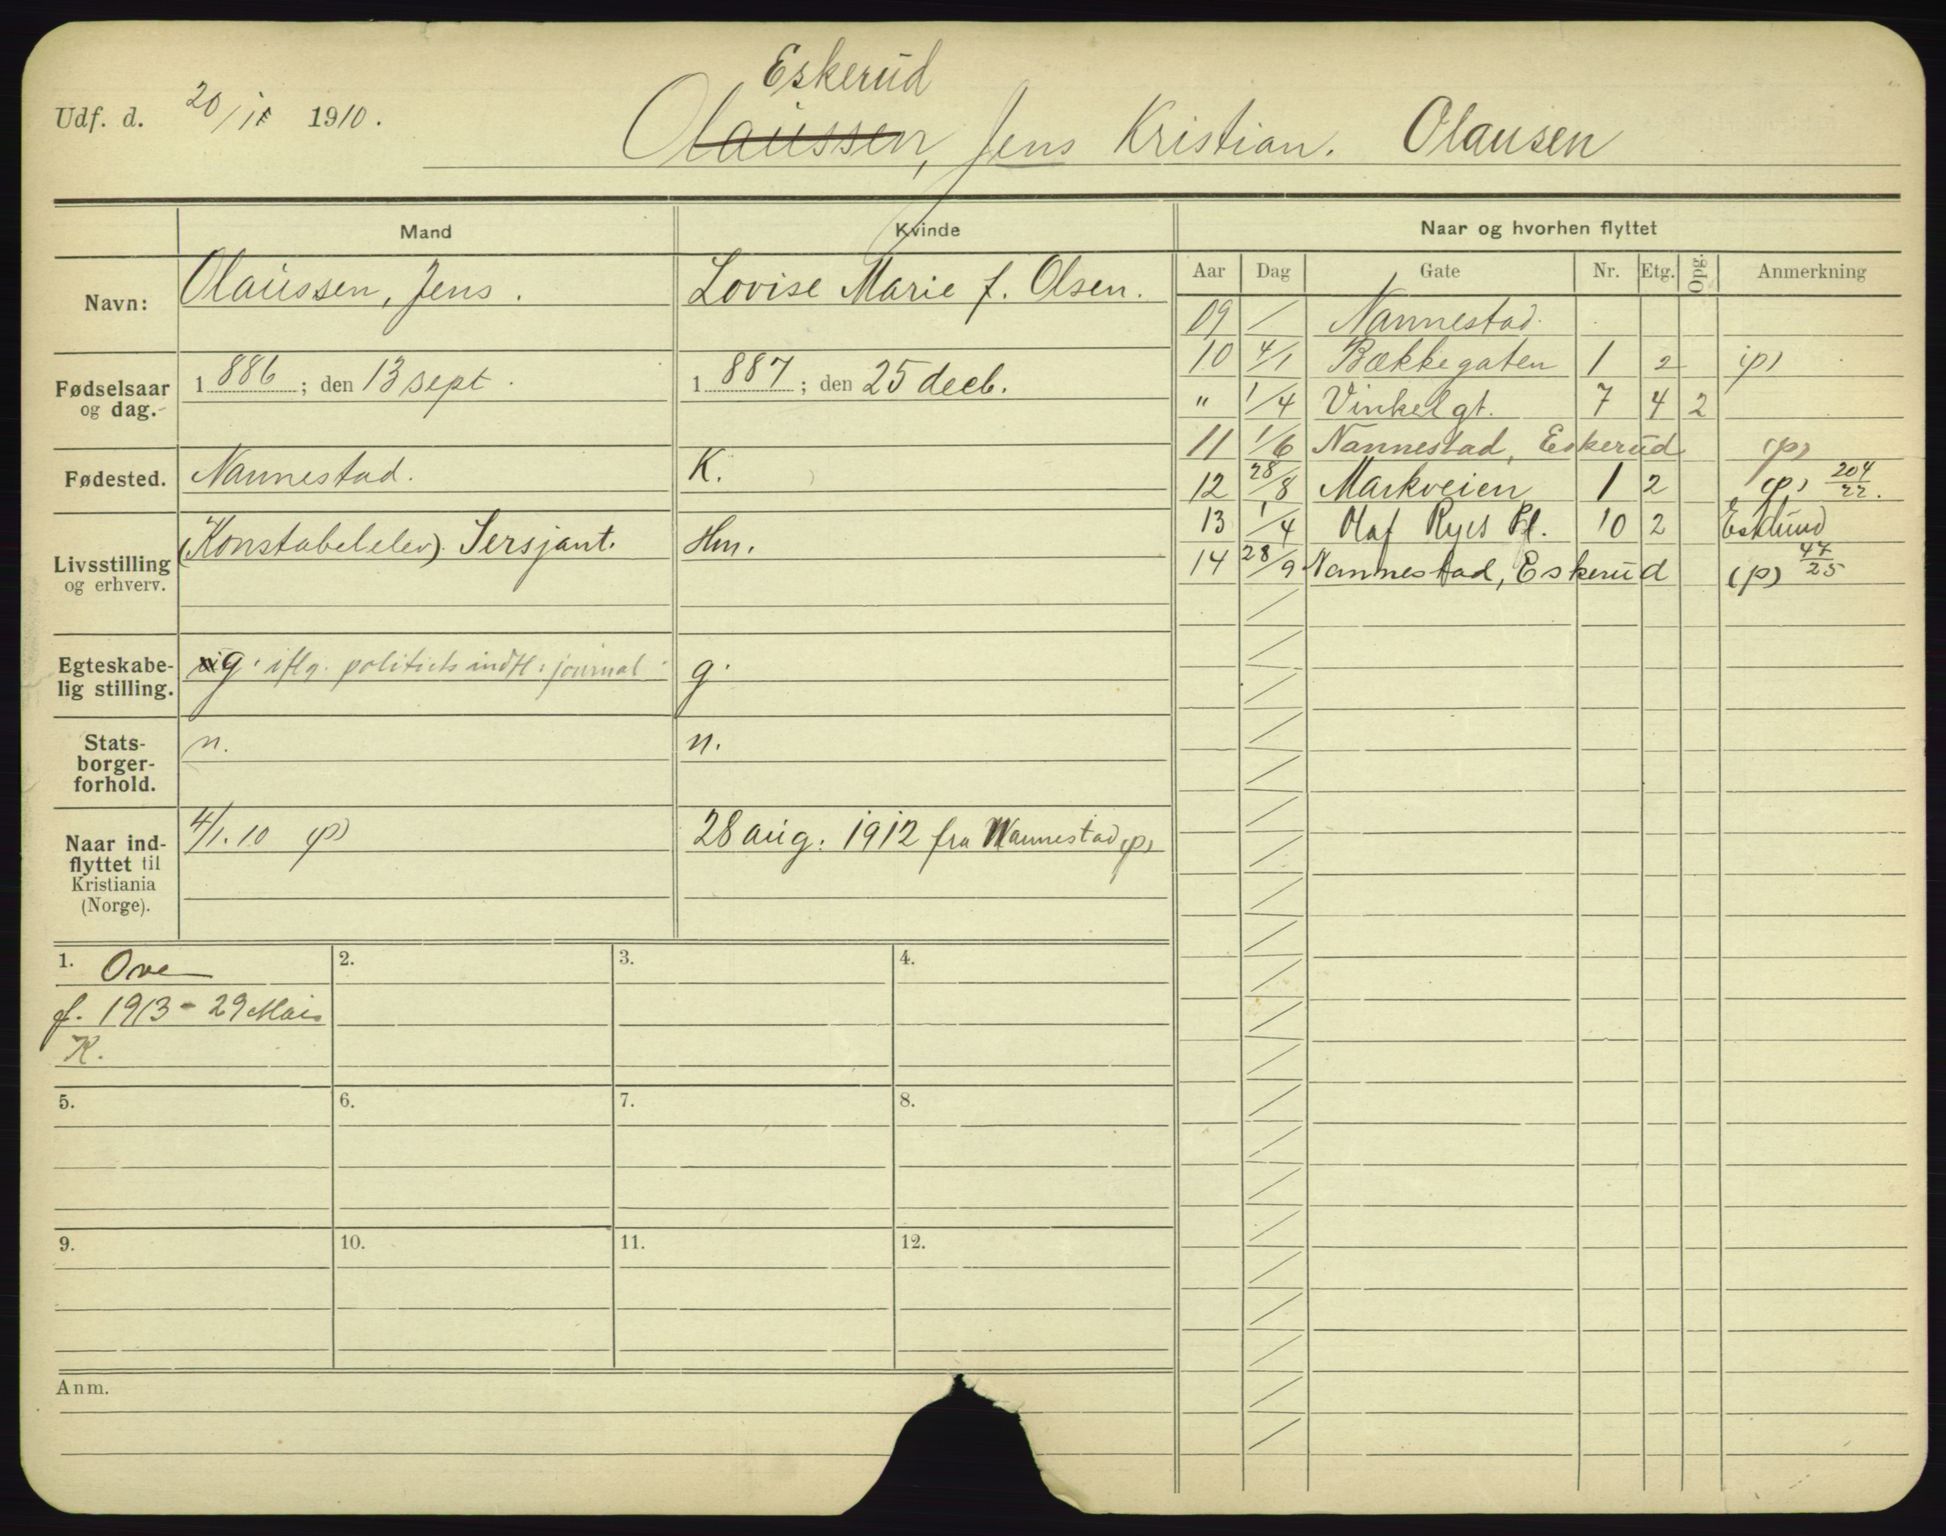 Eskerud
Udf. d. 20/11 1910.
Olaussen, Jens Kristian. Olausen
Mand Kvinde Naar og hvorhen flyttet
Aar Dag Gate Nr. Etg. Opg. Anmerkning
Navn: Olaussen, Jens. Lovise Marie f. Olsen.
Fødselsaar og dag. 1886; den 13 sept. 1887; den 25 decb.
Fødested. Nannestad. K.
Livsstilling og erhverv. (Konstabelelev). Sersjant. Hm.
Egteskabe-
lig stilling. g. iflg. politiets indfl. journal g.
Stats-
borger-
forhold. n. n.
Naar ind-
flyttet til
Kristiania
(Norge). 4/1. 10 (p) 28 aug. 1912 fra Nannestad (p)
09 / Nannestad.
10 4/1 Bækkegaten 1 2 (p)
" 1/4 Vinkelgt. 7 4 2
11 1/6 Nannestad, Eskerud (p)
12 28/8 Markveien 1 2 (p) 204/22.
13 1/4 Olaf Ryes Pl. 10 2
14 28/9 Nannestad, Eskerud (p) 47/25
1. Ove
f. 1913 - 29 Mai
K.
2.
3.
4.
5.
6.
7.
8.
9.
10.
11.
12.
Anm.